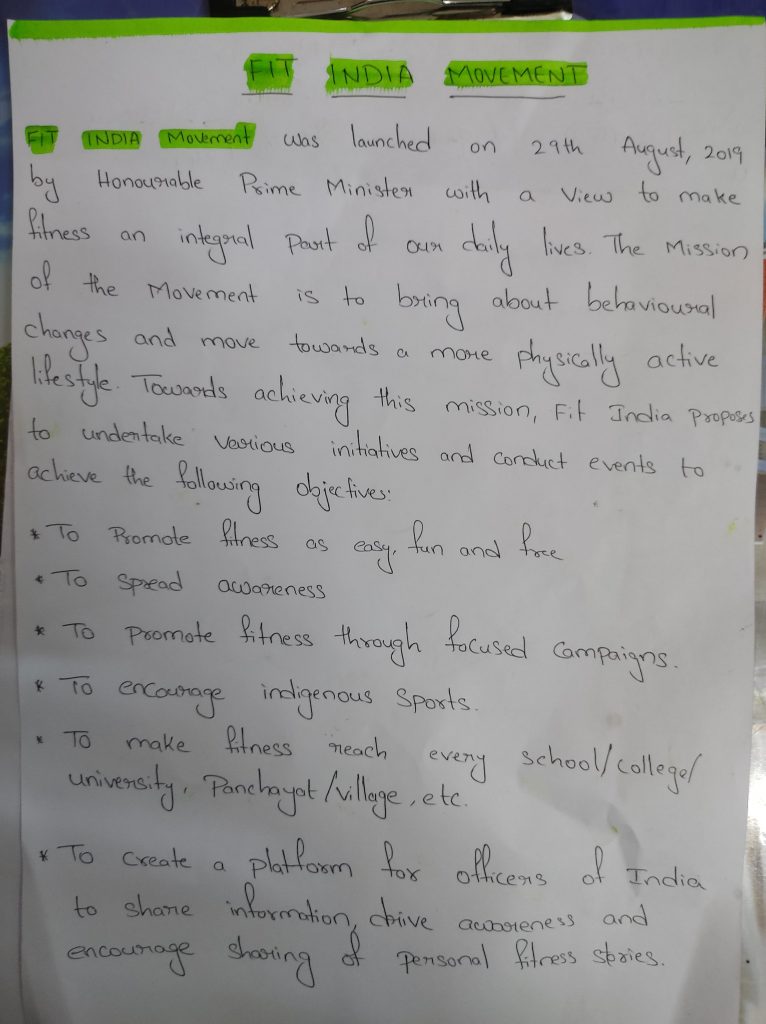 FIT INDIA MOVEMENT
FIT INDIA Movement was launched on 29th August, 2019
by Honourable Prime Minister with a view to make
fitness an integral part of our daily lives. The Mission
of the Movement is to bring about behavioural
changes and move towards a more physically active
lifestyle. Towards achieving this mission, Fit India proposes
to undertake various initiatives and conduct events to
achieve the following objectives:
* To Promote fitness as easy, fun and free
* To Spread awareness
* To promote fitness through focused campaigns.
* To encourage indigenous Sports.
* To make fitness reach every school/college/
university, Panchayat/village, etc.
* To Create a platform for officers of India
to share information, drive awareness and
encourage sharing of personal fitness stories.